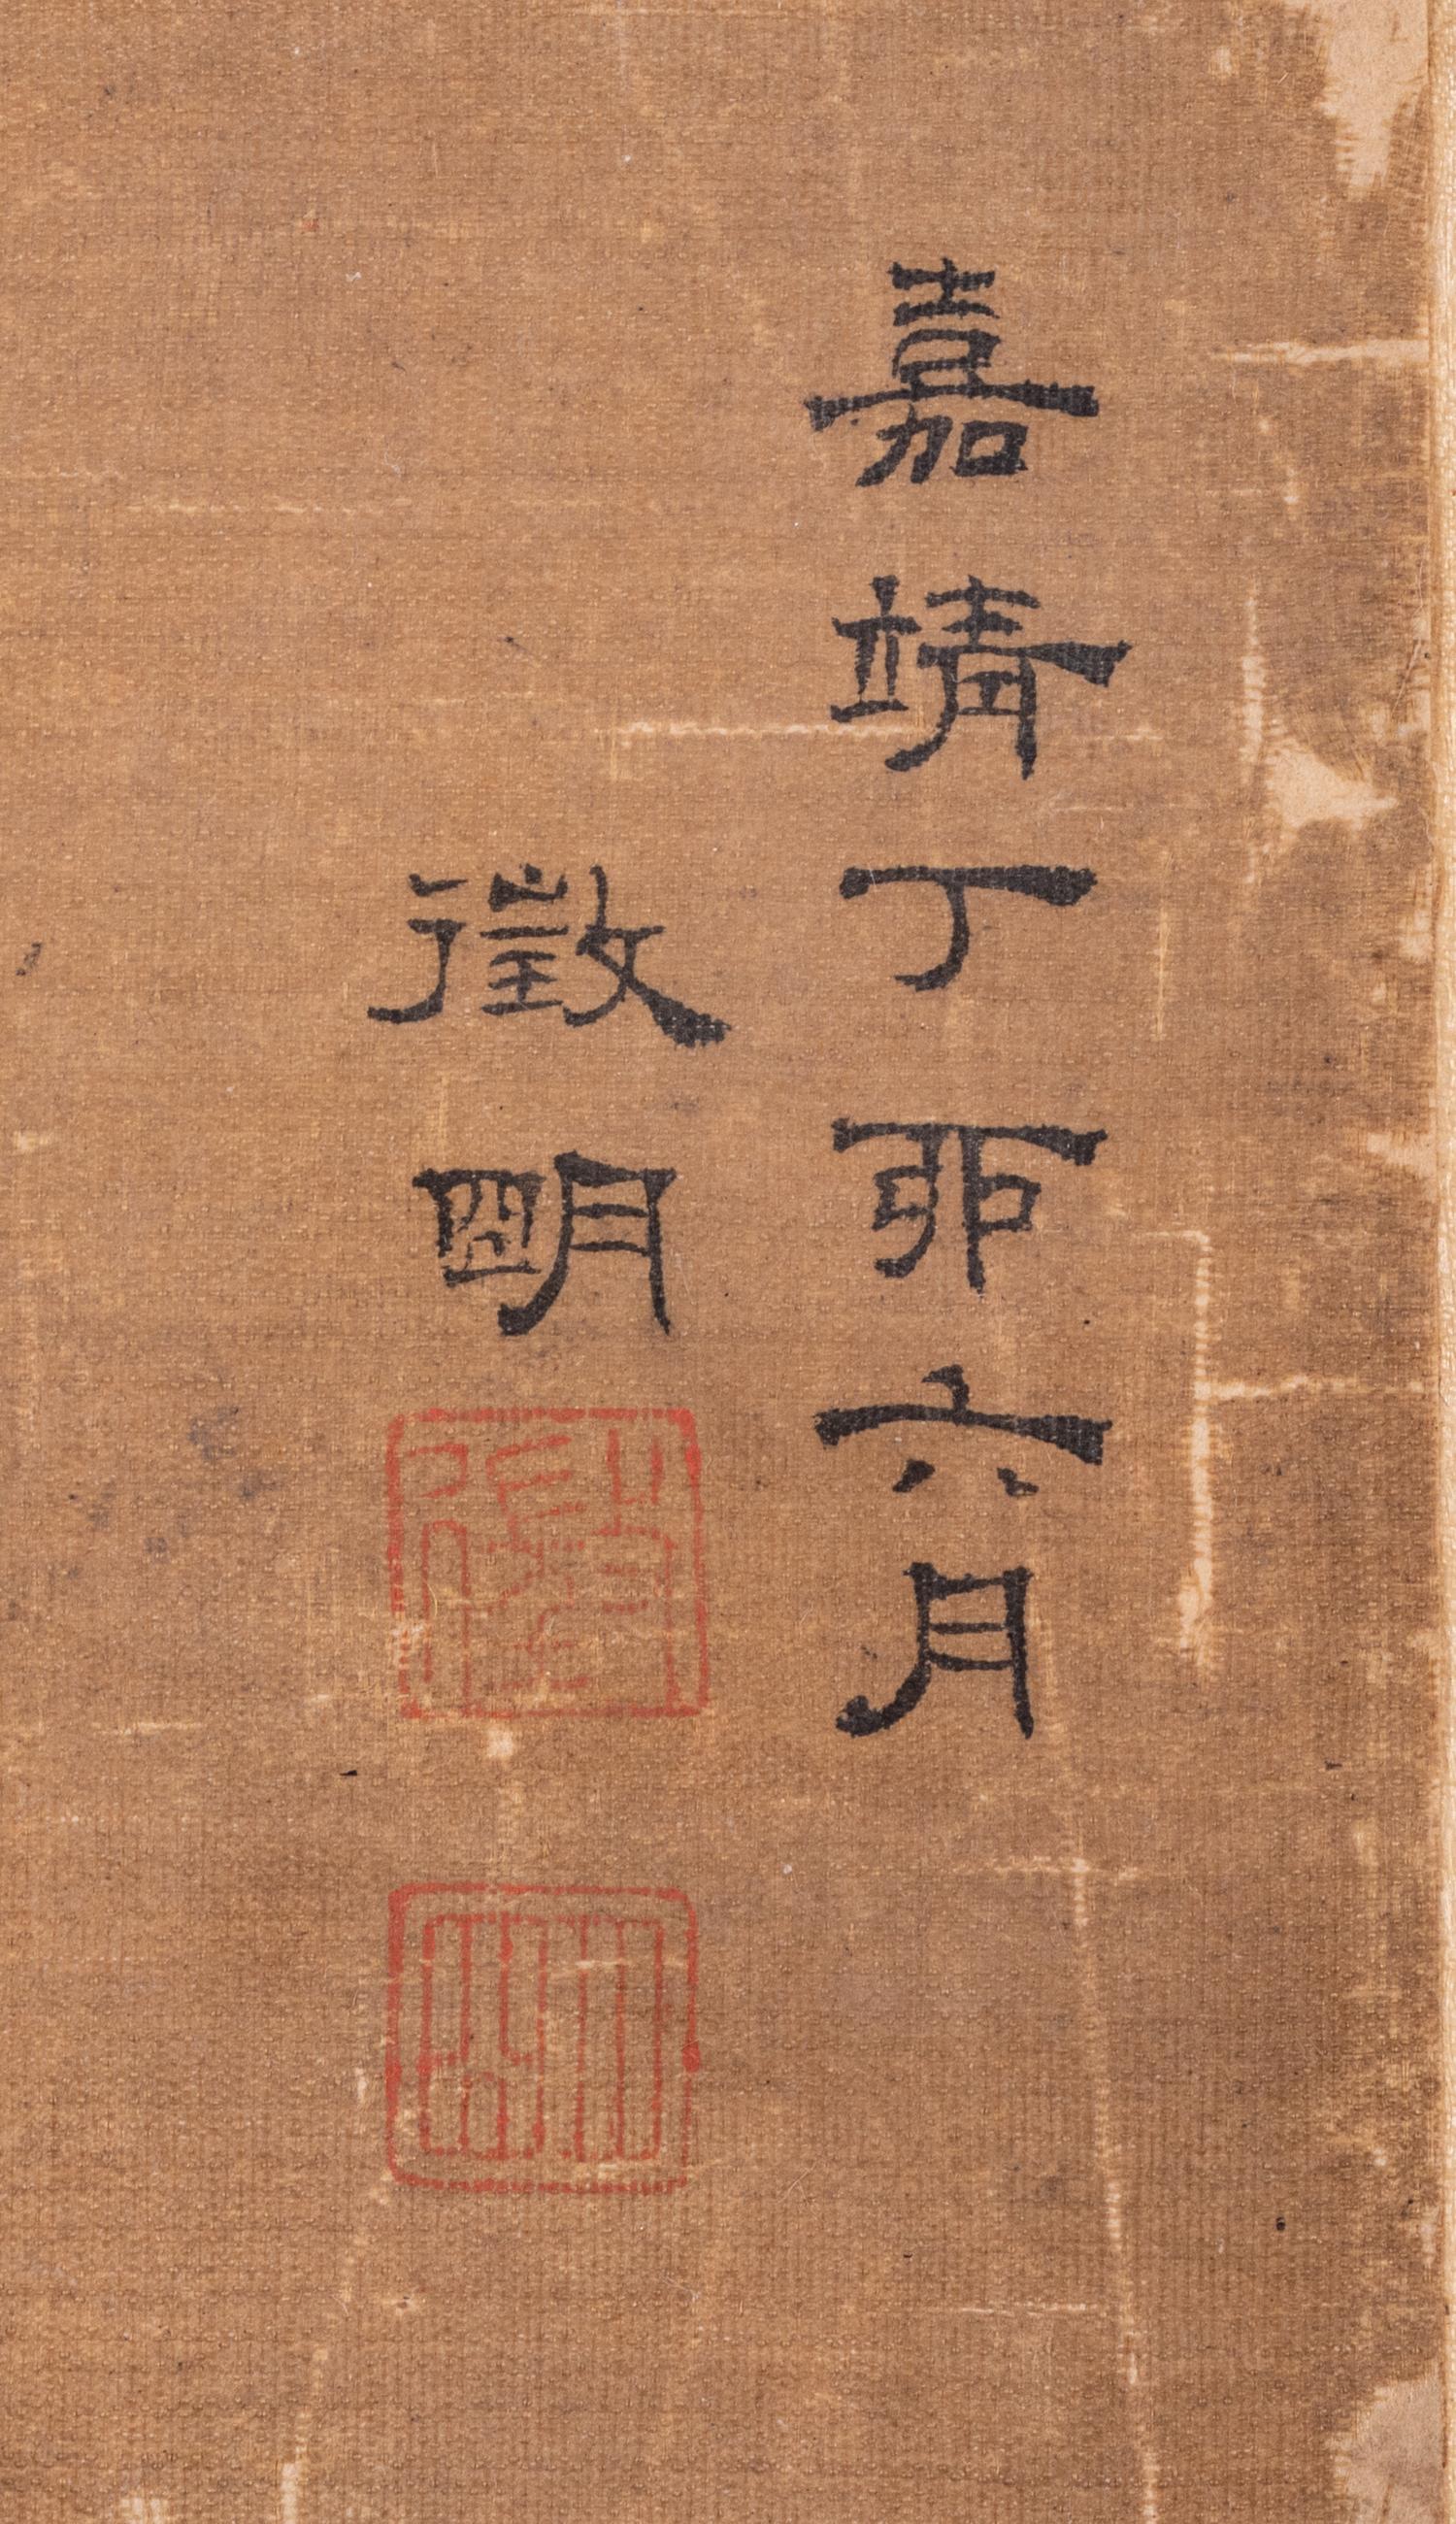 嘉靖丁丣六月
徵明